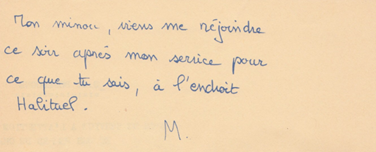 Mon minou, viens me réjoindre
ce soir après mon service pour
ce que tu sais, à l'endroit
Habituel.
M.